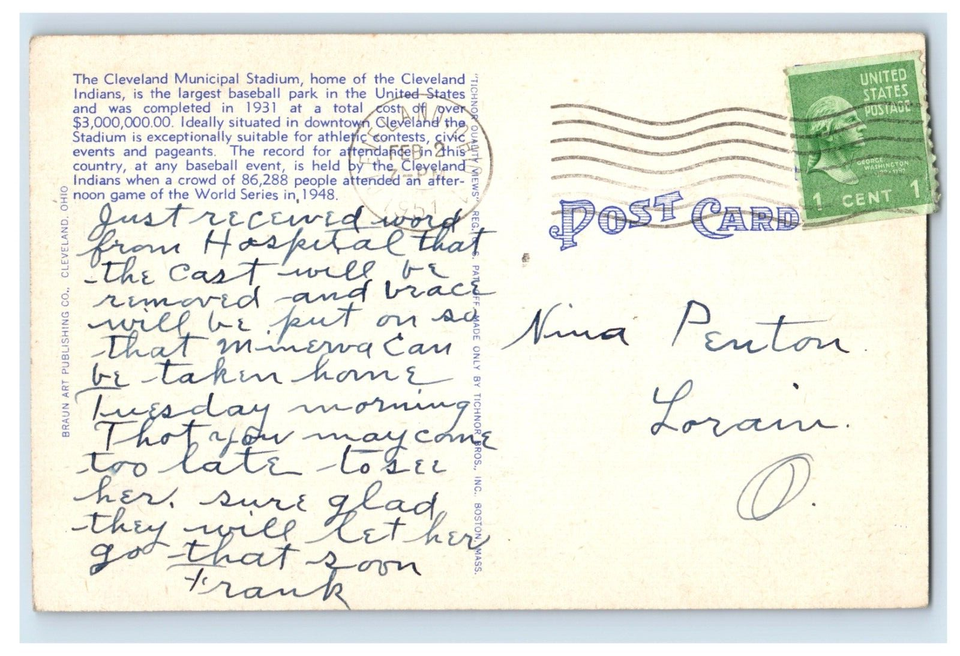 The Cleveland Municipal Stadium, home of the Cleveland
Indians, is the largest baseball park in the United States
and was completed in 1931 at a total cost of over
$3,000,000.00. Ideally situated in downtown Cleveland the
Stadium is exceptionally suitable for athletic contests, civic
events and pageants. The record for attendance in this
country, at any baseball event, is held by the Cleveland
Indians when a crowd of 86,288 people attended an after-
noon game of the World Series in 1948.
Just received word
from Hospital that
the cast will be
removed and brace
will be put on so
that Minerva can
be taken home
Tuesday morning
Thot you may come
too late to see
her. sure glad
they will let her
go that soon
Frank
BRAUN ART PUBLISHING CO., CLEVELAND, OHIO
"TICHNOR QUALITY VIEWS" REG. U.S. PAT. OFF. MADE ONLY BY TICHNOR BROS., INC. BOSTON, MASS.
CLEVELAND
FEB 2
1951
POST CARD
UNITED
STATES
POSTAGE
GEORGE
WASHINGTON
1 CENT 1
Nina Penton
Lorain.
O.